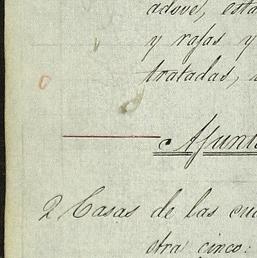 adove, esta
y rajas y
tratadas,
Ayunt
2 Casas de las cua
otra cinco: